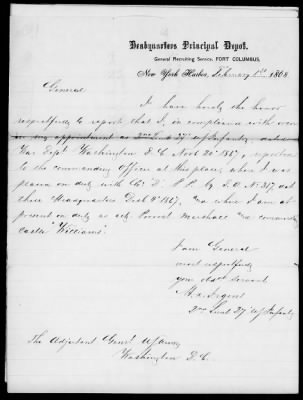 Headquarters Principal Depot,
General Recruiting Service, FORT COLUMBUS,
New York Harbor, February 1st 1868
General
I have hereby the honor
respectfully to report that I, in compliance with
my appointment as 2nd Lieut 27" Infantry, dated
War Dept Washington D.C. Nov. 20" 1867, reported
to the commanding Officer at this place, where I was
placed on duty with Co. P. P. by S.O. No 217,
these Headquarters Decb 4" 1867, and where I am at
present on duty as act. Provost Marshall and comdg
Castle "Williams".
I am General
most respectfully
your obdt servant
2nd Lieut 27" US Infantry
The Adjutant Genrl US Army
Washington D.C.